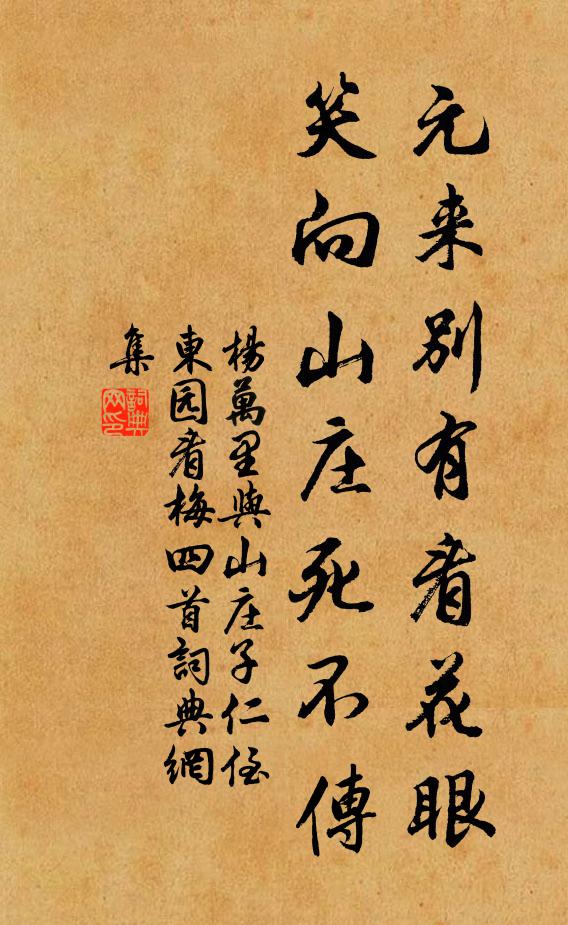 元来别有看花眼
笑向山庄死不傳
楊萬里與山庄子仁侄
東园看梅四首詞典網
集
詞典
网印